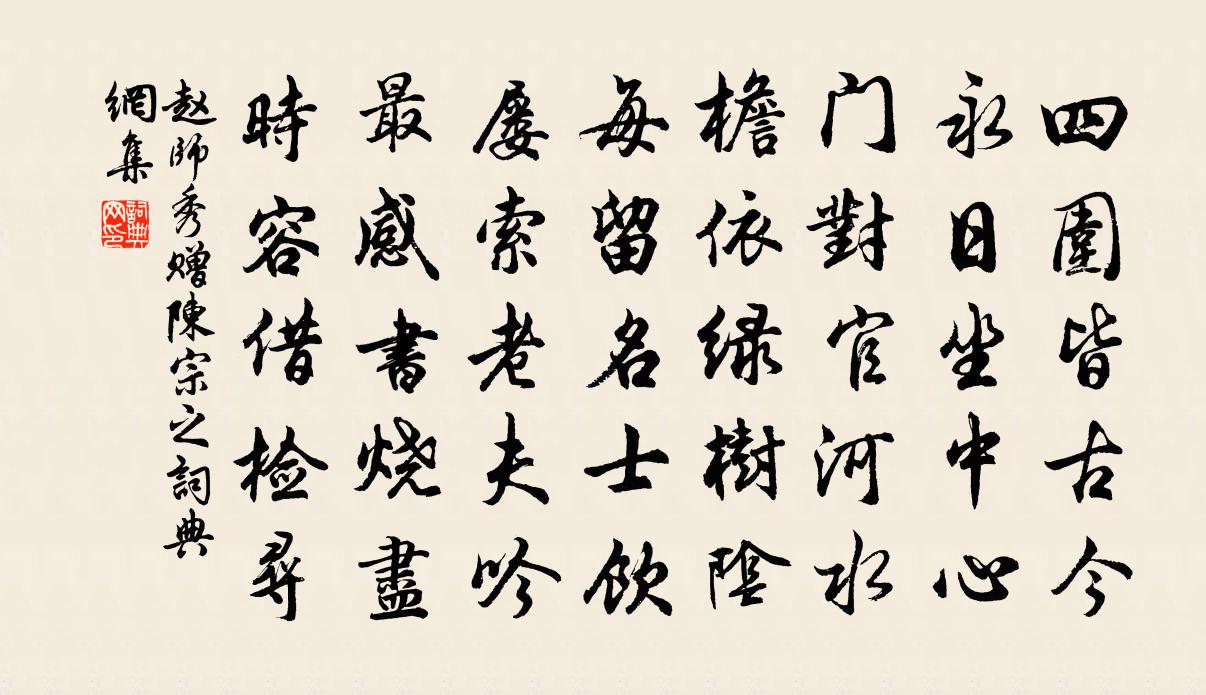 四圍皆古今
永日坐中心
门對官河水
檐依緑樹陰
每留名士飲
屡索老夫吟
最感書烧盡
時容借检尋
赵師秀赠陳宗之詞典
網集
詞典
网印